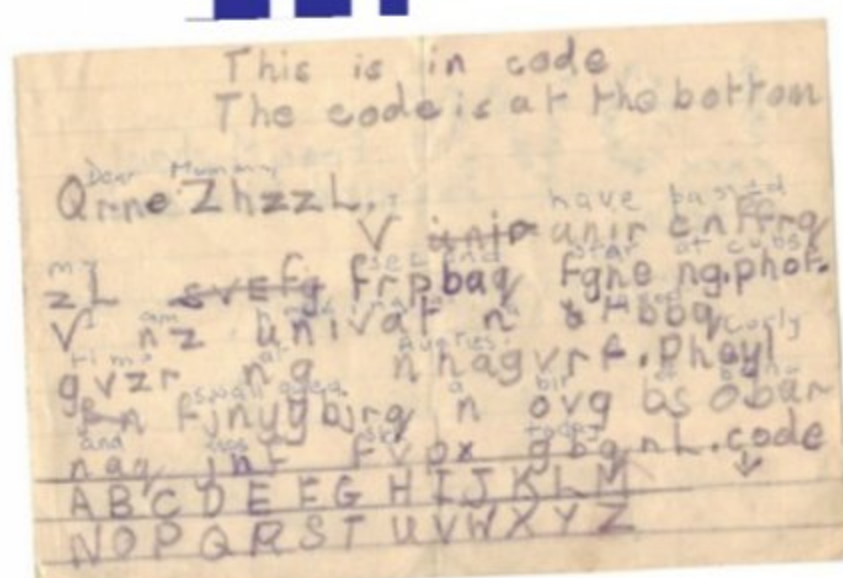 This is in code
The code is at the bottom
Dear Mummy
Qrne ZhzzL.
have passed
V unir cnffrq
my second star at cubs
zL svefg frpbaq fgne ng.phof.
I am
V nz univat n tbbq
time at Aunties. curly
gvzr ng nhagvrf.Pheyl
swallowed a bit of
n fjnyybjrq n ovg bs obar
and was sick today
naq jnf fvpx gbqnL.code
A B C D E F G H I J K L M
N O P Q R S T U V W X Y Z